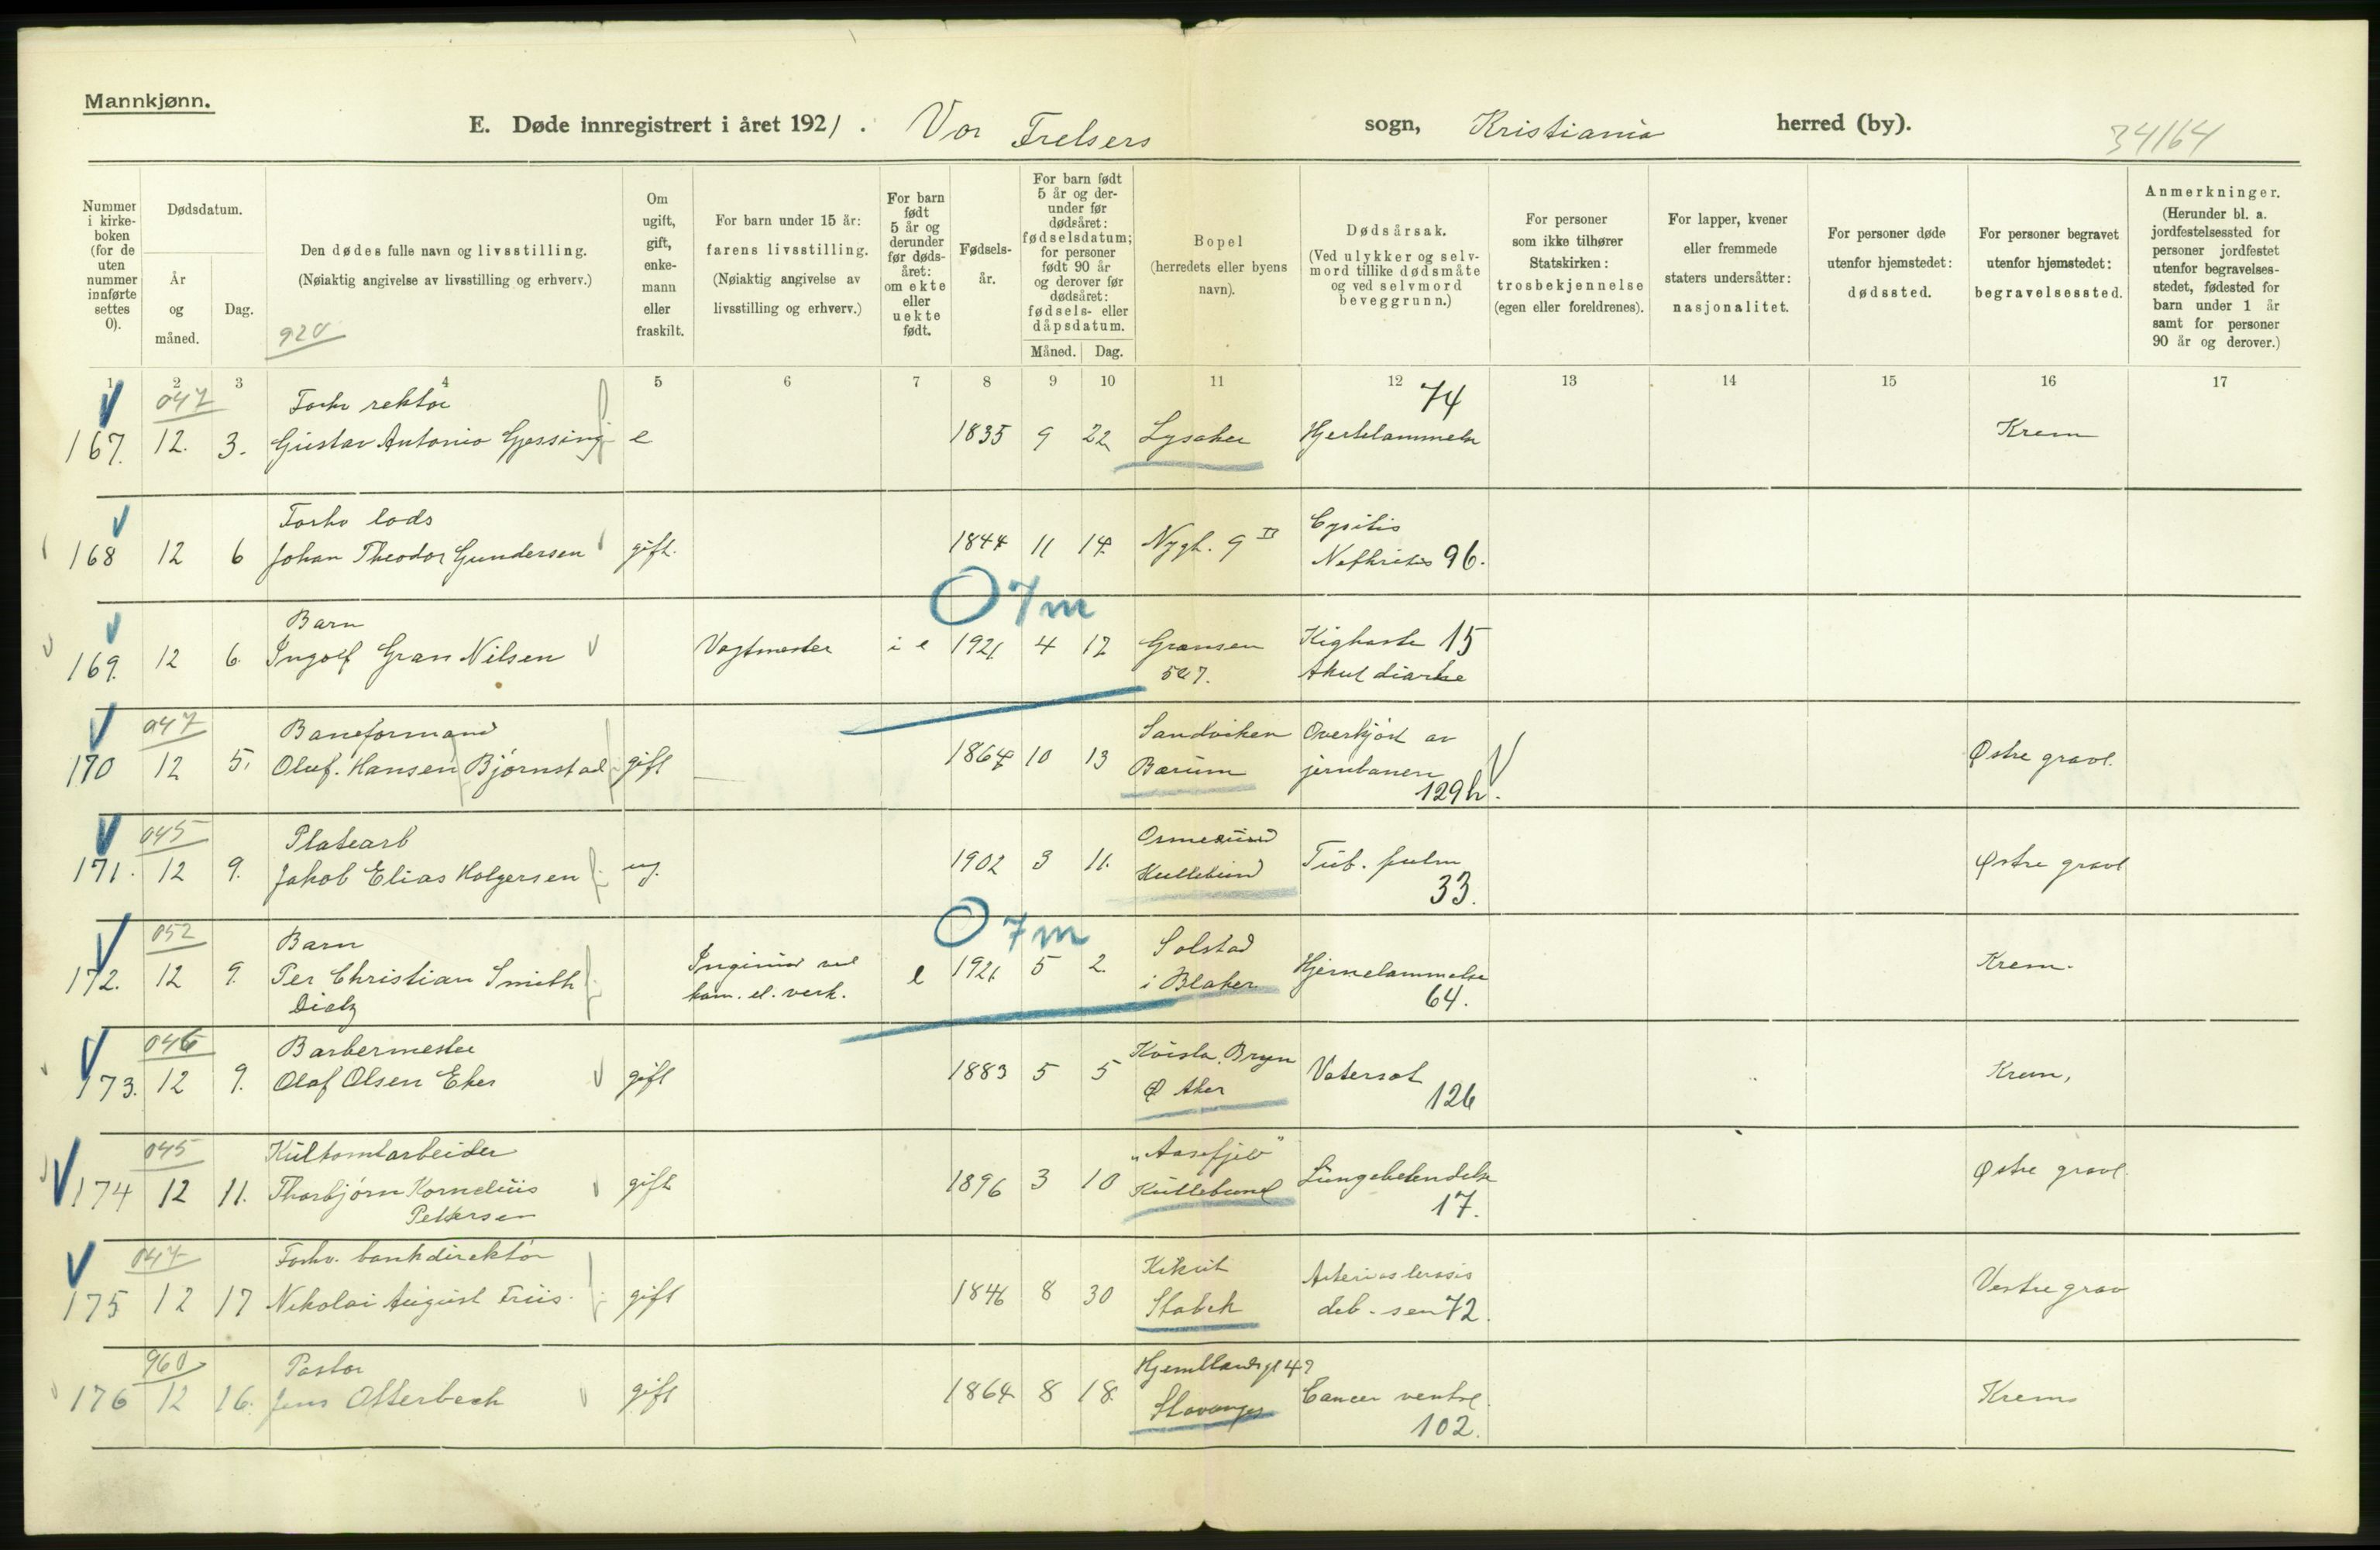 Mannkjønn.
E. Døde innregistrert i året 1921. Vor Frelsers sogn, Kristiania herred (by).
34/64
Nummer i kirkeboken (for de uten nummer innførte settes 0).
Dødsdatum.
År og måned.
Dag.
Den dødes fulle navn og livsstilling.
(Nøiaktig angivelse av livsstilling og erhverv.)
920
Om ugift, gift, enkemann eller fraskilt.
For barn under 15 år: farens livsstilling.
(Nøiaktig angivelse av livsstilling og erhverv.)
For barn født 5 år og derunder før dødsåret: om ekte eller uekte født.
Fødselsår.
For barn født 5 år og derunder før dødsåret: fødselsdatum; for personer født 90 år og derover før dødsåret: fødsels- eller dåpsdatum.
Måned. Dag.
Bopel (herredets eller byens navn).
Dødsårsak.
(Ved ulykker og selvmord tillike dødsmåte og ved selvmord beveggrunn.)
For personer som ikke tilhører Statskirken: trosbekjennelse (egen eller foreldrenes).
For lapper, kvener eller fremmede staters undersåtter: nasjonalitet.
For personer døde utenfor hjemstedet: dødssted.
For personer begravet utenfor hjemstedet: begravelsessted.
Anmerkninger.
(Herunder bl. a. jordfestelsessted for personer jordfestet utenfor begravelsesstedet, fødested for barn under 1 år samt for personer 90 år og derover.)
1 2 3 4 5 6 7 8 9 10 11 12 13 14 15 16 17
047 Forhv rektor 74
167. 12. 3. Gustav Antonio Gjessing e 1835 9 22 Lysaker Hjertelammelse Krem
Forhv lods Cysitis
168 12 6 Johan Theodor Gundersen gift. 1844 11 14. Nygt. 9 II Nefkritis 96.
Barn 0 7m
169. 12 6. Ingolf Gran Nilsen Vagtmester e 1921 4 12 Grænsen Kighoste 15
5 7. Akut diarhe
047 Baneformand Sandviken Overkjört av
170 12 5. Oluf. Hansen Bjørnstad gift 1864 10 13 Bærum jernbanen Østre gravl.
129 h.
045 Platearb Ormesund
171. 12 9. Jakob Elias Holgersen ug. 1902 3 11. Kullebund Tub. pulm Østre gravl
33.
052 Barn 0 7m Solstad
172. 12 9. Per Christian Smith Ingeniør ved e 1921 5 2. i Blaker Hjernelammelse Krem.
Dietz kom. el. verk. 64.
046 Barbermester Bryn
173. 12 9. Olaf Olsen Eker gift 1883 5 5 Ø Aker Vatersot Krem,
126
045 Kultomtarbeider "Aasefjeld"
174 12 11. Thorbjørn Kornelius gift 1896 3 10 Kullebund Lungebetendelse Østre gravl.
Pettersen 17.
047 Forhv. bankdirektør
175 12 17 Nikolai August Friis. gift 1846 8 30 Stabek deb. sen 72. Vestre grav
960 Pastor
176 12 16. Jens Otterbech gift 1864 8 18. Stavanger Cancer ventrl. Krem
102.